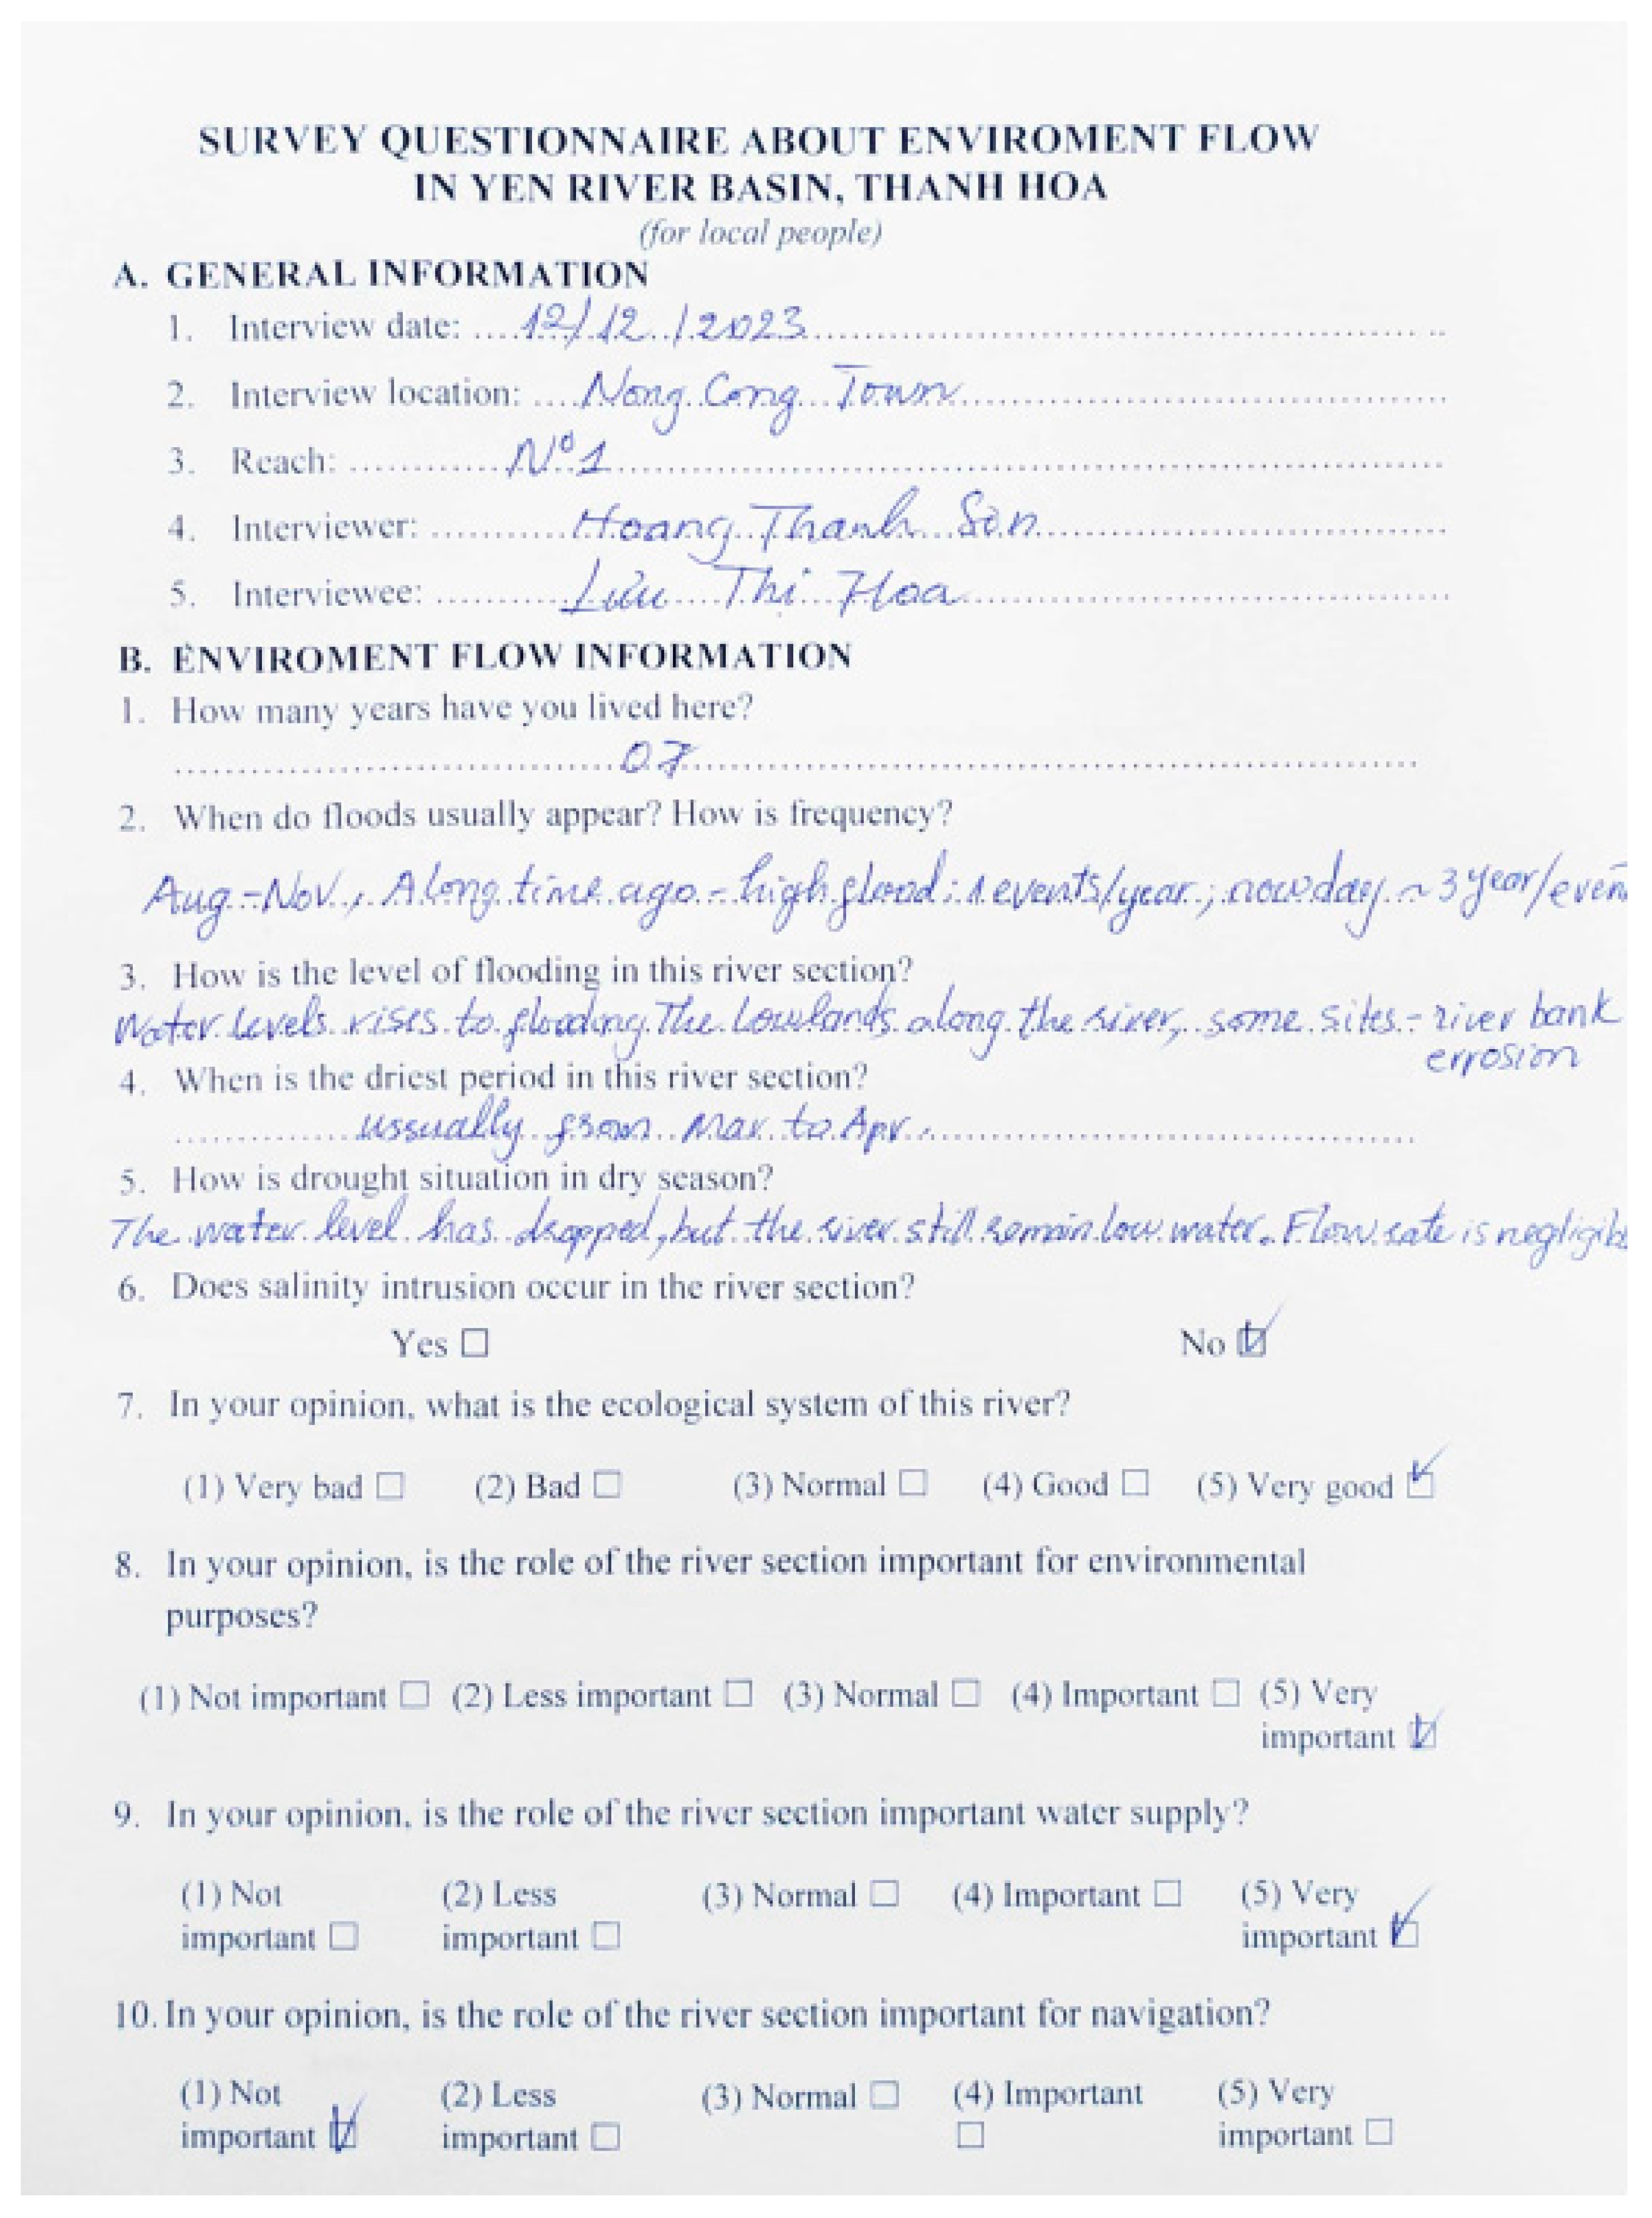 SURVEY QUESTIONNAIRE ABOUT ENVIROMENT FLOW
IN YEN RIVER BASIN, THANH HOA
(for local people)
A. GENERAL INFORMATION
1. Interview date: 12/12/2023
2. Interview location: Nong Cong Town
3. Reach: N°1
4. Interviewer: Hoang Thanh Son
5. Interviewee: Lưu Thi Hoa
B. ENVIROMENT FLOW INFORMATION
1. How many years have you lived here?
07
2. When do floods usually appear? How is frequency?
Aug-Nov., A long time ago - high flood: 1 events/year; nowday ~ 3 year/even
3. How is the level of flooding in this river section?
Water levels rises to flooding The Lowlands along the river, some sites - river bank
errosion
4. When is the driest period in this river section?
ussually from Mar to Apr.
5. How is drought situation in dry season?
The water level has dropped, but the river still remain low water. Flow rate is negligible
6. Does salinity intrusion occur in the river section?
Yes ☐ No ☑
7. In your opinion, what is the ecological system of this river?
(1) Very bad ☐ (2) Bad ☐ (3) Normal ☐ (4) Good ☐ (5) Very good ☑
8. In your opinion, is the role of the river section important for environmental
purposes?
(1) Not important ☐ (2) Less important ☐ (3) Normal ☐ (4) Important ☐ (5) Very
important ☑
9. In your opinion, is the role of the river section important water supply?
(1) Not (2) Less (3) Normal ☐ (4) Important ☐ (5) Very
important ☐ important ☐ important ☑
10. In your opinion, is the role of the river section important for navigation?
(1) Not (2) Less (3) Normal ☐ (4) Important (5) Very
important ☑ important ☐ ☐ important ☐